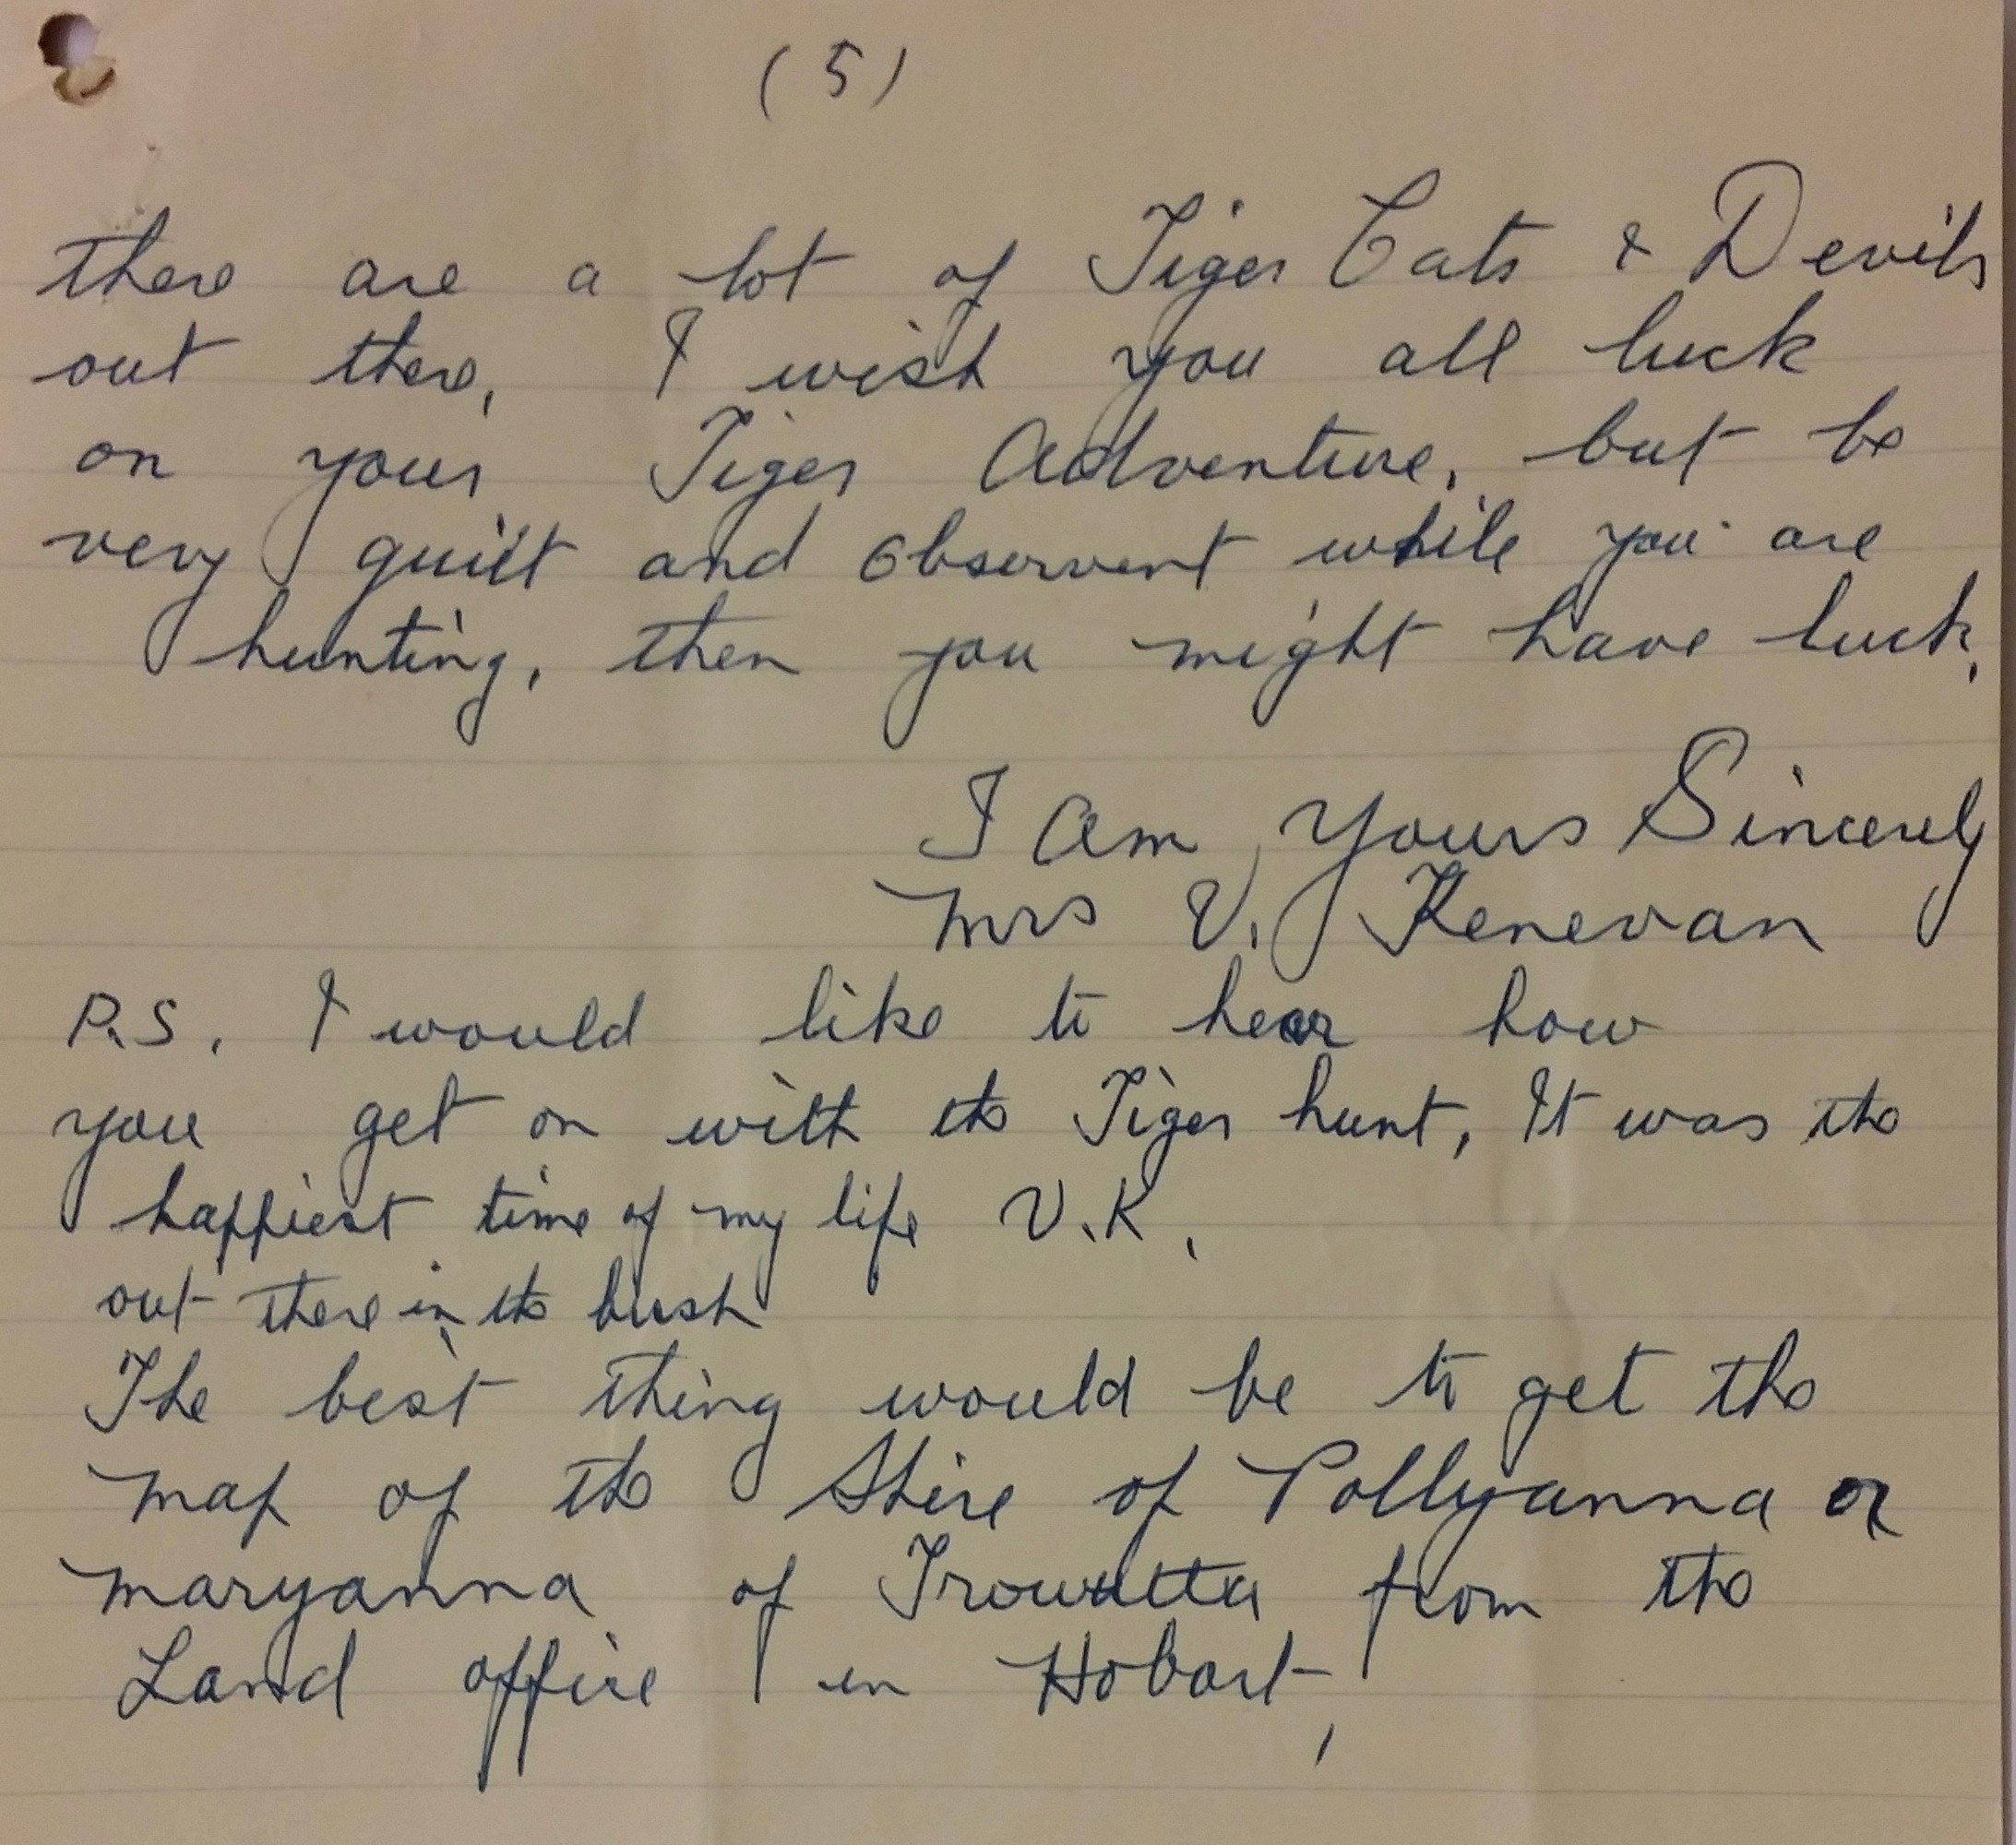 (5)
there are a lot of Tiger Cats & Devils
out there, I wish you all luck
on your Tiger Adventure, but be
very quilt and observent while you are
hunting, then you might have luck,
I Am Yours Sincerely
Mrs V. Kenevan
P.S. I would like to hear how
you get on with the Tiger hunt, It was the
happiest time of my life V.K.
out there in the bush
The best thing would be to get the
map of the Shire of Pollyanna or
maryanna of Trowutta from the
Land office in Hobart,